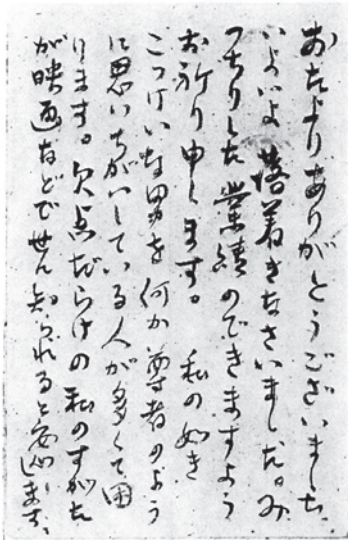 おたよりありがとうございました、
いよいよ落着きなさいました。み
っちりした業績のできますよう
お祈り申します。 私の如き
こっけいな男を何か尊者のよう
に思いちがいしている人が多くて困
ります。欠点だらけの私のすがた
が映画などでせん知られると安心します、